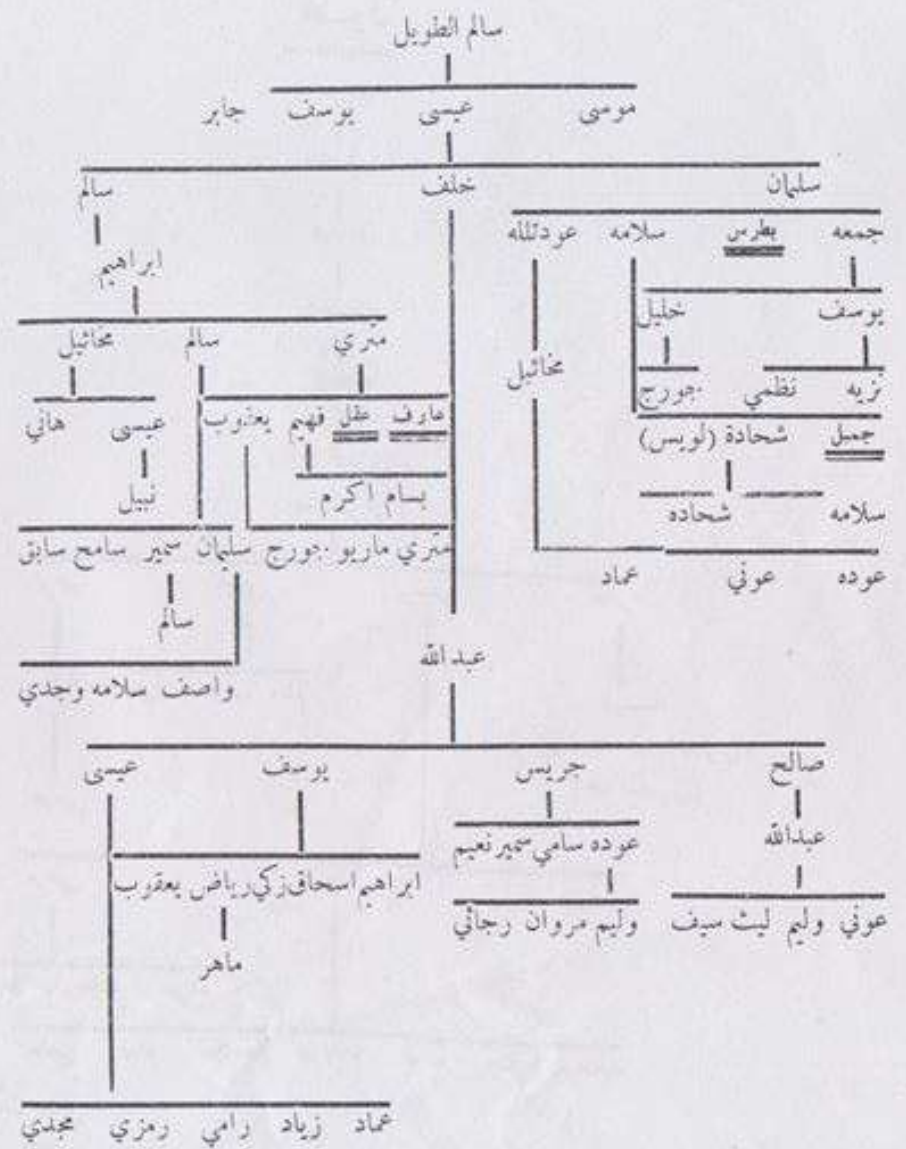 سالم الطويل
موسى عيسى يوسف جابر
سليمان خلف سالم
جمعه بطرس سلامه عودتلله
ابراهيم
يوسف خليل
متري سالم مخائيل
مخائيل
نزيه نظمي جورج
عارف عقل فهيم يعقوب
عيسى هاني
جميل شحادة (لويس)
بسام اكرم
نبيل
سلامه شحاده
متري ماريو جورج
سليمان سمير سامح سابق
عوده عوني عماد
سالم
عبدالله
واصف سلامه وجدي
صالح جريس يوسف عيسى
عبدالله
عوده سامي سمير نعيم
ابراهيم اسحاق زكي رياض يعقوب
عوني وليم ليث سيف
وليم مروان رجائي
ماهر
عماد زياد رامي رمزي مجدي